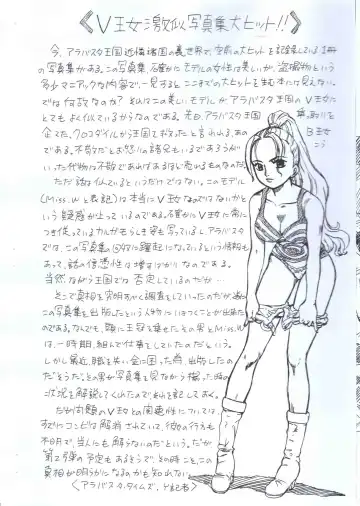 《V王女激似写真集大ヒット!!》
今、アラバスタ王国近隣諸国の裏世界で、空前の大ヒットを記録している1冊
の写真集がある。この写真集、確かにモデルの女性は美しいが、盗撮物という
多少マニアックな内容で、一見するとここまでの大ヒットを生む本には見えない。
では何故なのか？それはこの美しいモデルが、アラバスタ王国のV王女に
とてもよく似ているからなのである。元白アラバスタ王国
企てた、クロコダイルが王国を
である。不敬だとお怒りの諸兄もいるであろうが
いった代物は不敬であればあるほど売れるものなのだ。
ただ話は似ているというだけではない。このモデル
(Miss.Wと表記)は本当にV王女なのではないか
という疑惑が立っているのである。確かにV王女に常に
つき従っているカルガモらしき姿も写っているし、アラバスタ
では、この写真集の回収に躍起になっているという情報も
あって、話の信憑性は増すばかりなのである。
当然ながら王国では否定しているのだが…
そこで真相を究明すべく調査をしていった
この写真集を出版したという人物につくことが出来た
のである。なんでも、頭に王冠を乗せたその男とMiss.W
は、一時期、組んで仕事をしていたのだという。
しかし最近、職を失い金に困った為出版したの
だそうだ。その男が写真集を見ながら撮った時の
状況を解説してくれたのでそれを記しておく。
だが問題のV王女との関連性については、
すでにコンビは解消されていて、彼女の行方も
不明で、当人にも解らないのだという。だが
第2弾の予定もあるそうで、その時こそ、この
真相が明らかになるのかも知れない。
〈アラバスタ・タイムズ、ゲ記者〉